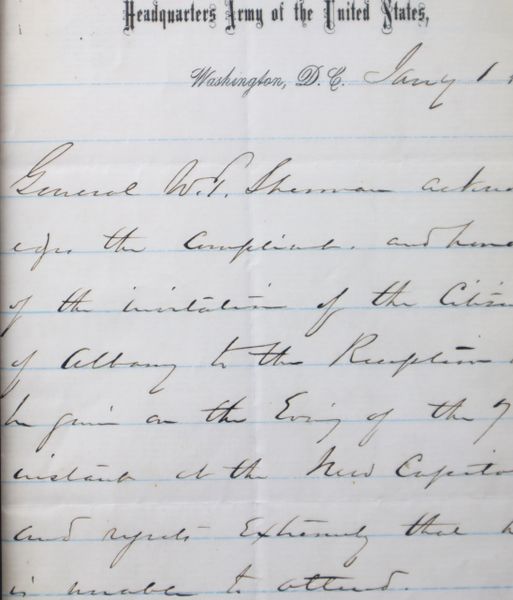 Headquarters Army of the United States,
Washington, D.C. Jany 1
General W.T. Sherman acknow
edges the compliment. and hono
of the invitation of the Citize
of Albany to the Reception
be given on the Eving of the 7
instant at the New Capito
and regrets Extremely that h
is unable to attend.